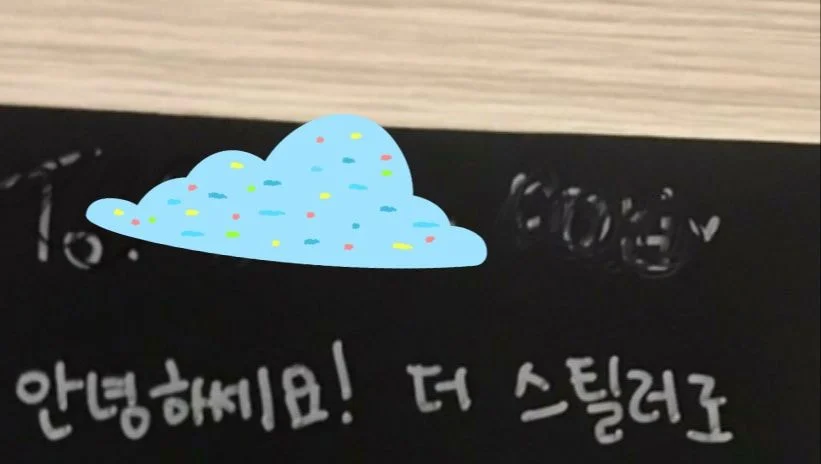 To.
안녕하세요! 더 스틸러로